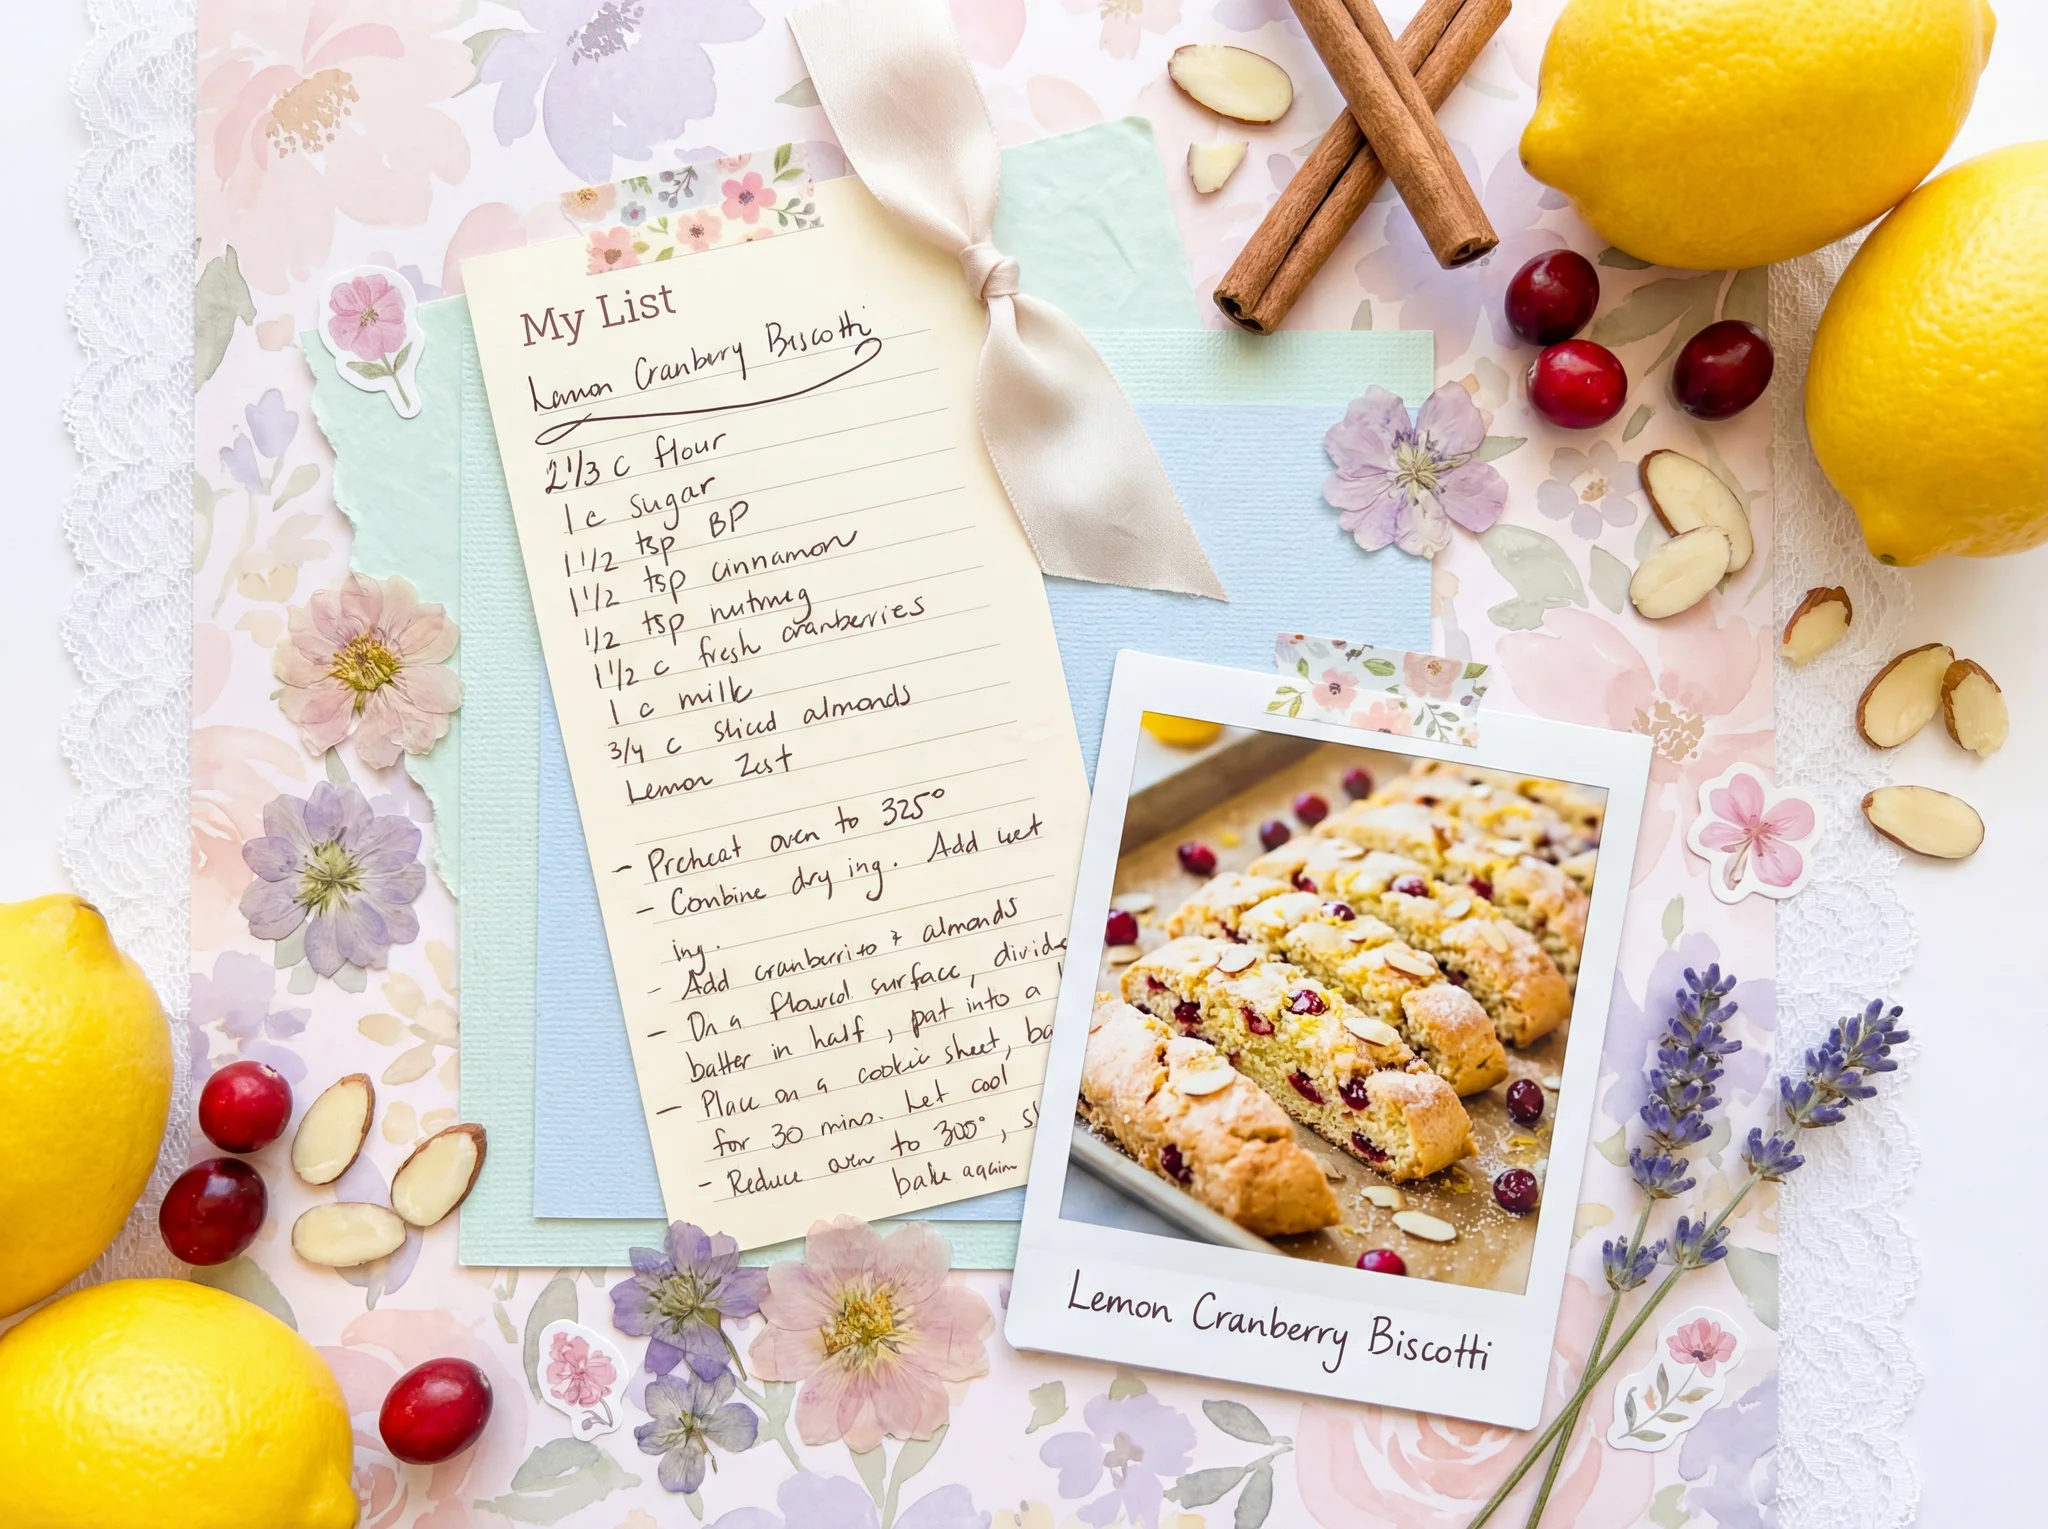 My List
Lemon Cranberry Biscotti
2 1/3 c flour
1 c sugar
1 1/2 tsp BP
1 1/2 tsp cinnamon
1/2 tsp nutmeg
1 1/2 c fresh cranberries
1 c milk
3/4 c sliced almonds
Lemon Zest
- Preheat oven to 325°
- Combine dry ing. Add wet
ing.
- Add cranberries & almonds
- On a floured surface, divide
batter in half, pat into a
- Place on a cookie sheet, ba
for 30 mins. Let cool
- Reduce oven to 300°, sl
bake again
Lemon Cranberry Biscotti